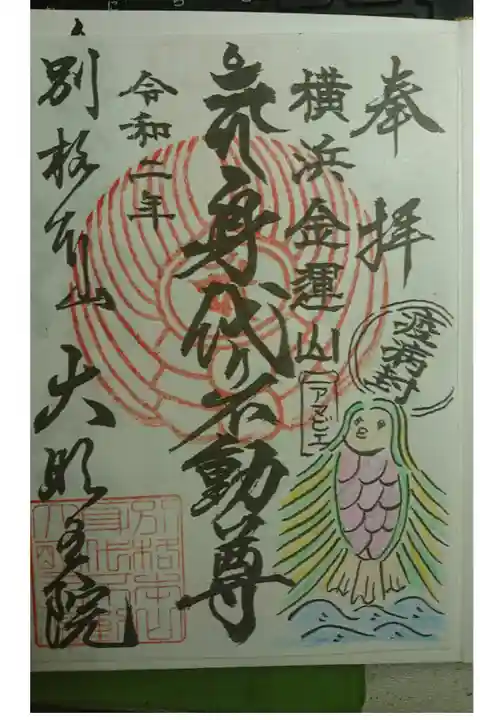 奉拝
横浜金運山
疫病封
アマビエ
身代り不動尊
令和二年
別格本山 大明王院